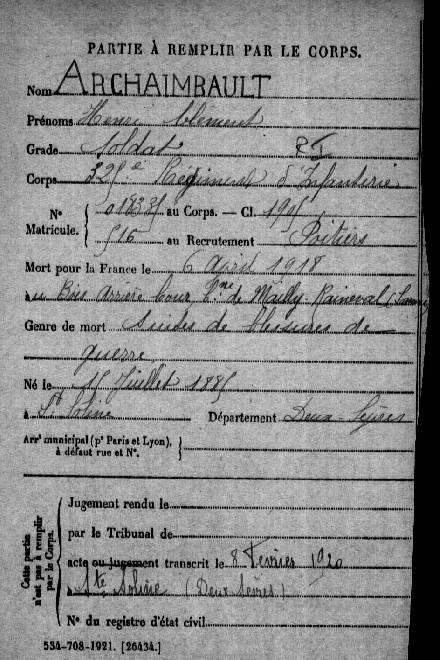 PARTIE À REMPLIR PAR LE CORPS.
Nom ARCHAIMBAULT
Prénoms Henri Clément
Grade Soldat RI
Corps 325e Régiment d'Infanterie
N° Matricule. { 01833 au Corps. — Cl. 1905
516 au Recrutement Poitiers
Mort pour la France le 6 Avril 1918
à au Bois arrière Cour de Mailly-Raineval (Somme
Genre de mort Suites de blessures de
guerre
Né le 15 Juillet 1885
à Ste Soline Département Deux-Sèvres
Arrt municipal (pr Paris et Lyon), à défaut rue et N°. }
Cette partie n'est pas à remplir par le Corps.
Jugement rendu le
par le Tribunal de
acte ou jugement transcrit le 8 Février 1920
à Ste Soline (Deux Sèvres)
N° du registre d'état civil
534-708-1921. [26434.]